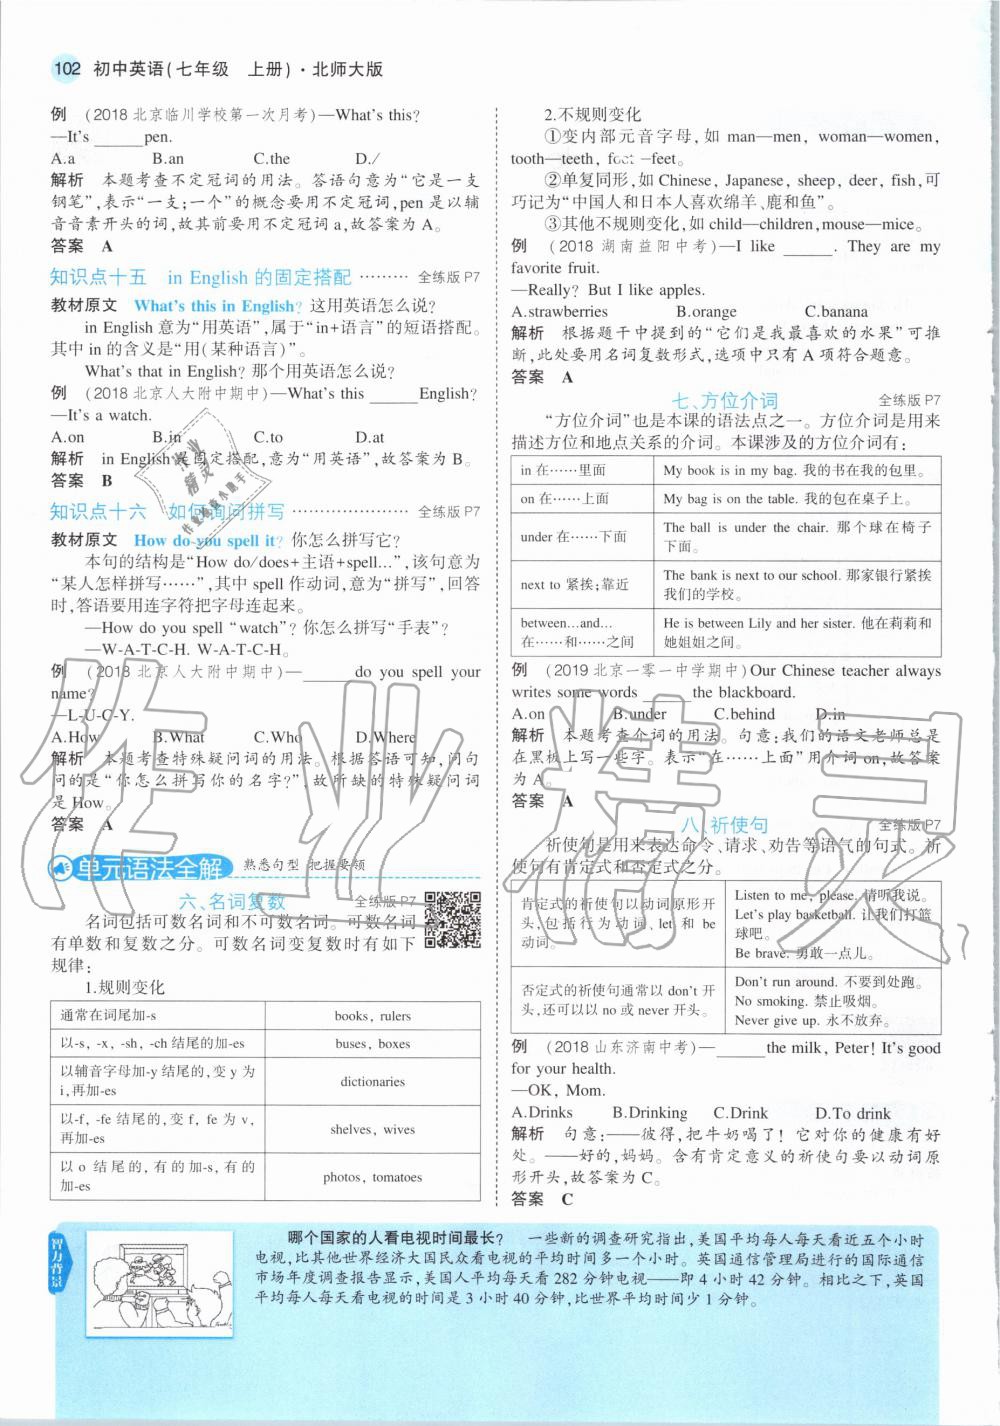 102 初中英语(七年级 上册)·北师大版
例 (2018北京临川学校第一次月考)—What's this?
—It's ______pen.
A.a B.an C.the D./
解析 本题考查不定冠词的用法。答语句意为“它是一支
钢笔”,表示“一支;一个”的概念要用不定冠词,pen是以辅
音音素开头的词,故其前要用不定冠词a,故答案为A。
答案 A
知识点十五 in English的固定搭配 ……… 全练版P7
教材原文 What's this in English? 这用英语怎么说?
in English意为“用英语”,属于“in+语言”的短语搭配。
其中in的含义是“用(某种语言)”。
What's that in English? 那个用英语怎么说?
例 (2018北京人大附中期中)—What's this ______English?
—It's a watch.
A.on B.in C.to D.at
解析 in English是固定搭配,意为“用英语”,故答案为B。
答案 B
知识点十六 如何询问拼写 ………………… 全练版P7
教材原文 How do you spell it? 你怎么拼写它?
本句的结构是“How do/does+主语+spell...”,该句意为
“某人怎样拼写……”,其中spell作动词,意为“拼写”,回答
时,答语要用连字符把字母连起来。
—How do you spell “watch”? 你怎么拼写“手表”?
—W-A-T-C-H. W-A-T-C-H。
例 (2018北京人大附中期中)—______ do you spell your
name?
—L-U-C-Y.
A.How B.What C.Who D.Where
解析 本题考查特殊疑问词的用法。根据答语可知,问句
问的是“你怎么拼写你的名字?”,故所缺的特殊疑问词
是How。
答案 A
单元语法全解 熟悉句型 把握要领
六、名词复数 全练版P7
名词包括可数名词和不可数名词。可数名词
有单数和复数之分。可数名词变复数时有如下
规律:
1.规则变化
通常在词尾加-s books, rulers
以-s, -x, -sh, -ch结尾的加-es buses, boxes
以辅音字母加-y结尾的,变y为
i,再加-es dictionaries
以-f, -fe结尾的,变f, fe为v,
再加-es shelves, wives
以o结尾的,有的加-s,有的
加-es photos, tomatoes
2.不规则变化
①变内部元音字母,如man—men, woman—women,
tooth—teeth, foot—feet。
②单复同形,如Chinese, Japanese, sheep, deer, fish,可
巧记为“中国人和日本人喜欢绵羊、鹿和鱼”。
③其他不规则变化,如child—children,mouse—mice。
例 (2018湖南益阳中考)—I like ______. They are my
favorite fruit.
—Really? But I like apples.
A.strawberries B.orange C.banana
解析 根据题干中提到的“它们是我最喜欢的水果”可推
断,此处要用名词复数形式,选项中只有A项符合题意。
答案 A
七、方位介词 全练版P7
“方位介词”也是本课的语法点之一。方位介词是用来
描述方位和地点关系的介词。本课涉及的方位介词有:
in 在……里面 My book is in my bag. 我的书在我的包里。
on 在……上面 My bag is on the table. 我的包在桌子上。
under 在……下面 The ball is under the chair. 那个球在椅子
下面。
next to 紧挨;靠近 The bank is next to our school. 那家银行紧挨
我们的学校。
between...and...
在……和……之间 He is between Lily and her sister. 他在莉莉和
她姐姐之间。
例 (2019北京一零一中学期中)Our Chinese teacher always
writes some words ______ the blackboard.
A.on B.under C.behind D.in
解析 本题考查介词的用法。句意:我们的语文老师总是
在黑板上写一些字。表示“在……上面”用介词on,故答案
为A。
答案 A
八、祈使句 全练版P7
祈使句是用来表达命令、请求、劝告等语气的句式。祈
使句有肯定式和否定式之分。
肯定式的祈使句以动词原形开
头,包括行为动词、let和be
动词。 Listen to me, please. 请听我说。
Let's play basketball. 让我们打篮
球吧。
Be brave. 勇敢一点儿。
否定式的祈使句通常以don't开
头,还可以以no或never开头。 Don't run around. 不要到处跑。
No smoking. 禁止吸烟。
Never give up. 永不放弃。
例 (2018山东济南中考)—______the milk, Peter! It's good
for your health.
—OK, Mom.
A.Drinks B.Drinking C.Drink D.To drink
解析 句意:——彼得,把牛奶喝了!它对你的健康有好
处。——好的,妈妈。含有肯定意义的祈使句要以动词原
形开头,故答案为C。
答案 C
智力背景
哪个国家的人看电视时间最长? 一些新的调查研究指出,美国平均每人每天看近五个小时
电视,比其他世界经济大国民众看电视的平均时间多一个小时。英国通信管理局进行的国际通信
市场年度调查报告显示,美国人平均每天看282分钟电视——即4小时42分钟。相比之下,英国
平均每人每天看电视的时间是3小时40分钟,比世界平均时间少1分钟。
作业精灵